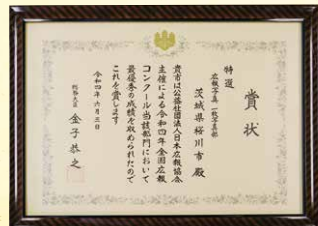 賞状
特選
広報写真 一枚写真部
茨城県桜川市 殿
貴市は公益社団法人日本広報協会
主催による令和四年全国広報
コンクール当該部門において
最優秀の成績を収められたので
これを賞します
令和四年六月三日
総務大臣 金子恭之